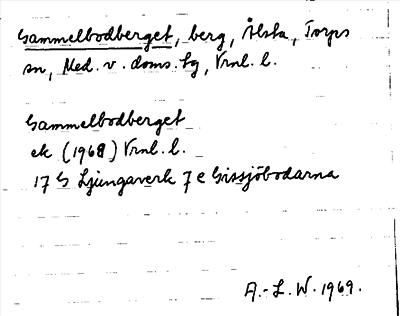 Gammelbodberget, berg, Ålsta, Torps
sn, Med. v. doms. tg, Vrnl. l.
Gammelbodberget
ek (1968) Vrnl. l.
17 G Ljungaverk 7 e Gissjöbodarna
A.-L. W. 1969.